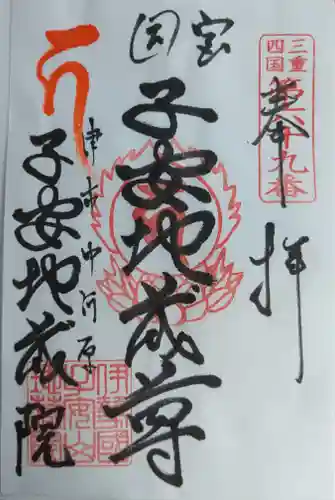 三重
四国
第六十九番
奉拝
宝国
子安地蔵尊
津市中河原
子安地蔵院